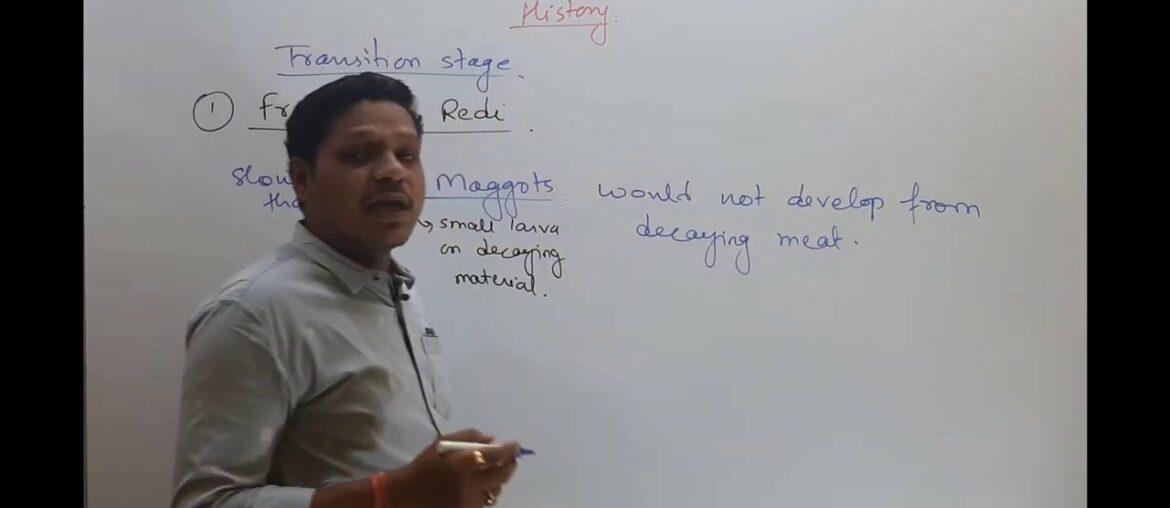 History.
Transition stage.
① Fr Redi.
Maggots would not develop from
tha
small larva decaying meat.
on decaying
material.